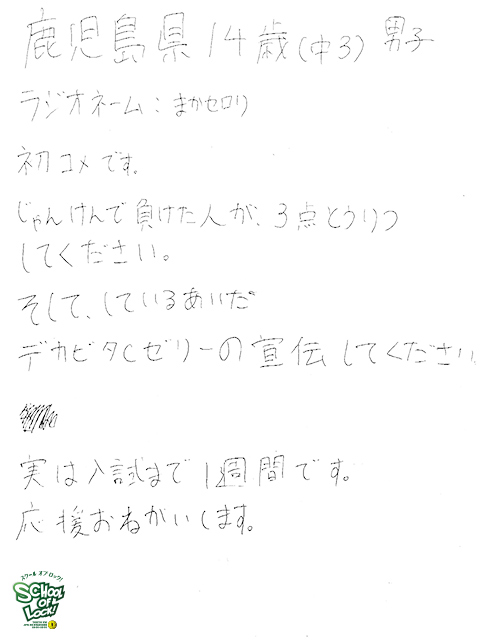 鹿児島県 14歳(中3) 男子
ラジオネーム：まかセロリ
初コメです。
じゃんけんで負けた人が、3点とうりつ
してください。
そして、しているあいだ
デカビタCゼリーの宣伝してください。
実は入試まで1週間です。
応援おねがいします。
スクール オブ ロック!
SCHOOL
OF
LOCK!